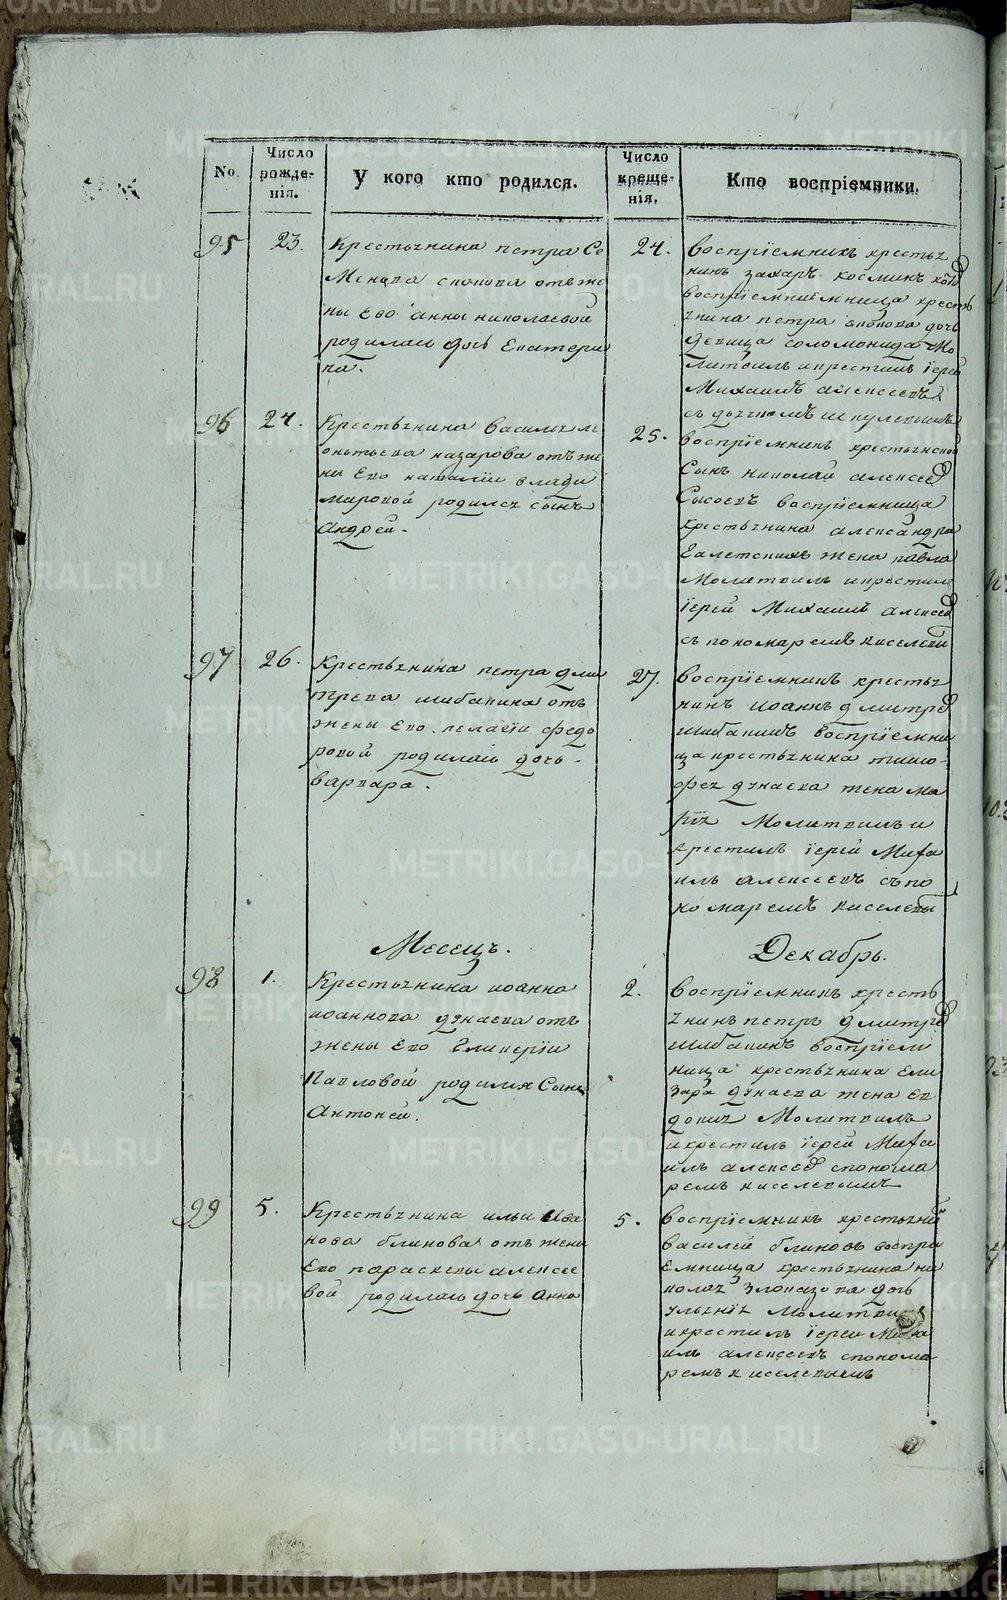 No
Число рожде-нія.
У кого кто родился.
Число креще-нія.
Кто воспріемники.
95
23.
Крестьянина петра Се
менова
отъ же
ны Его анны николаевой
родилась дочь Екатери
на.
24.
Воспріемникъ крестья
нинъ захаръ космин
воспріемница кресть
янина петра дочь
девица соломонида Мо
литвилъ и крестилъ іерей
Михаилъ алексеевъ
съ дьячкомъ
96
24.
Крестьянина василья ле
онтьева назарова отъ же
ны Его наталіи влади
мировой родился сынъ
Андрей.
25.
Воспріемникъ крестьянской
Сынъ николай алексеев
Сысоевъ воспріемница
крестьянина александра
жена павла
Молитвилъ и крестил
іерей Михаилъ алексеев
съ пономаремъ киселевы
97
26.
Крестьянина петра дми
трева шибанина отъ
жены Его пелагіи федо
ровой родилась дочь
варвара.
27.
Воспріемникъ крестья
нинъ иоаннъ дмитрев
шибанинъ воспріемни
ца крестьянина тимо-
фея дунаева жена ма
рія Молитвилъ и
крестилъ іерей Миха
илъ алексеевъ съ по
номаремъ киселевы
Месецъ.
Декабрь.
98
1.
Крестьянина иоанна
иоаннова дунаева отъ
жены Его Гликеріи
Павловой родился Сынъ
Антоней.
2.
Воспріемникъ кресть
янинъ петръ дмитрев
шибанинъ воспріем
ница крестьянина ели
зара дунаева жена ев
докия Молитвилъ
и крестилъ іерей Миха
илъ алексеев спонома
ремъ киселевымъ
99
5.
Крестьянина ильи ива
нова блинова отъ жены
Его параскевы алексее
вой родилась дочь анна
5.
Воспріемникъ крестьянин
василей блиновъ воспри
емница крестьянина ни
колая злоказова дочь
ульянія Молитвилъ
и крестилъ іерей Миха
илъ алексеевъ спонома
ремъ киселевымъ
METRIKI.GASO-URAL.RU